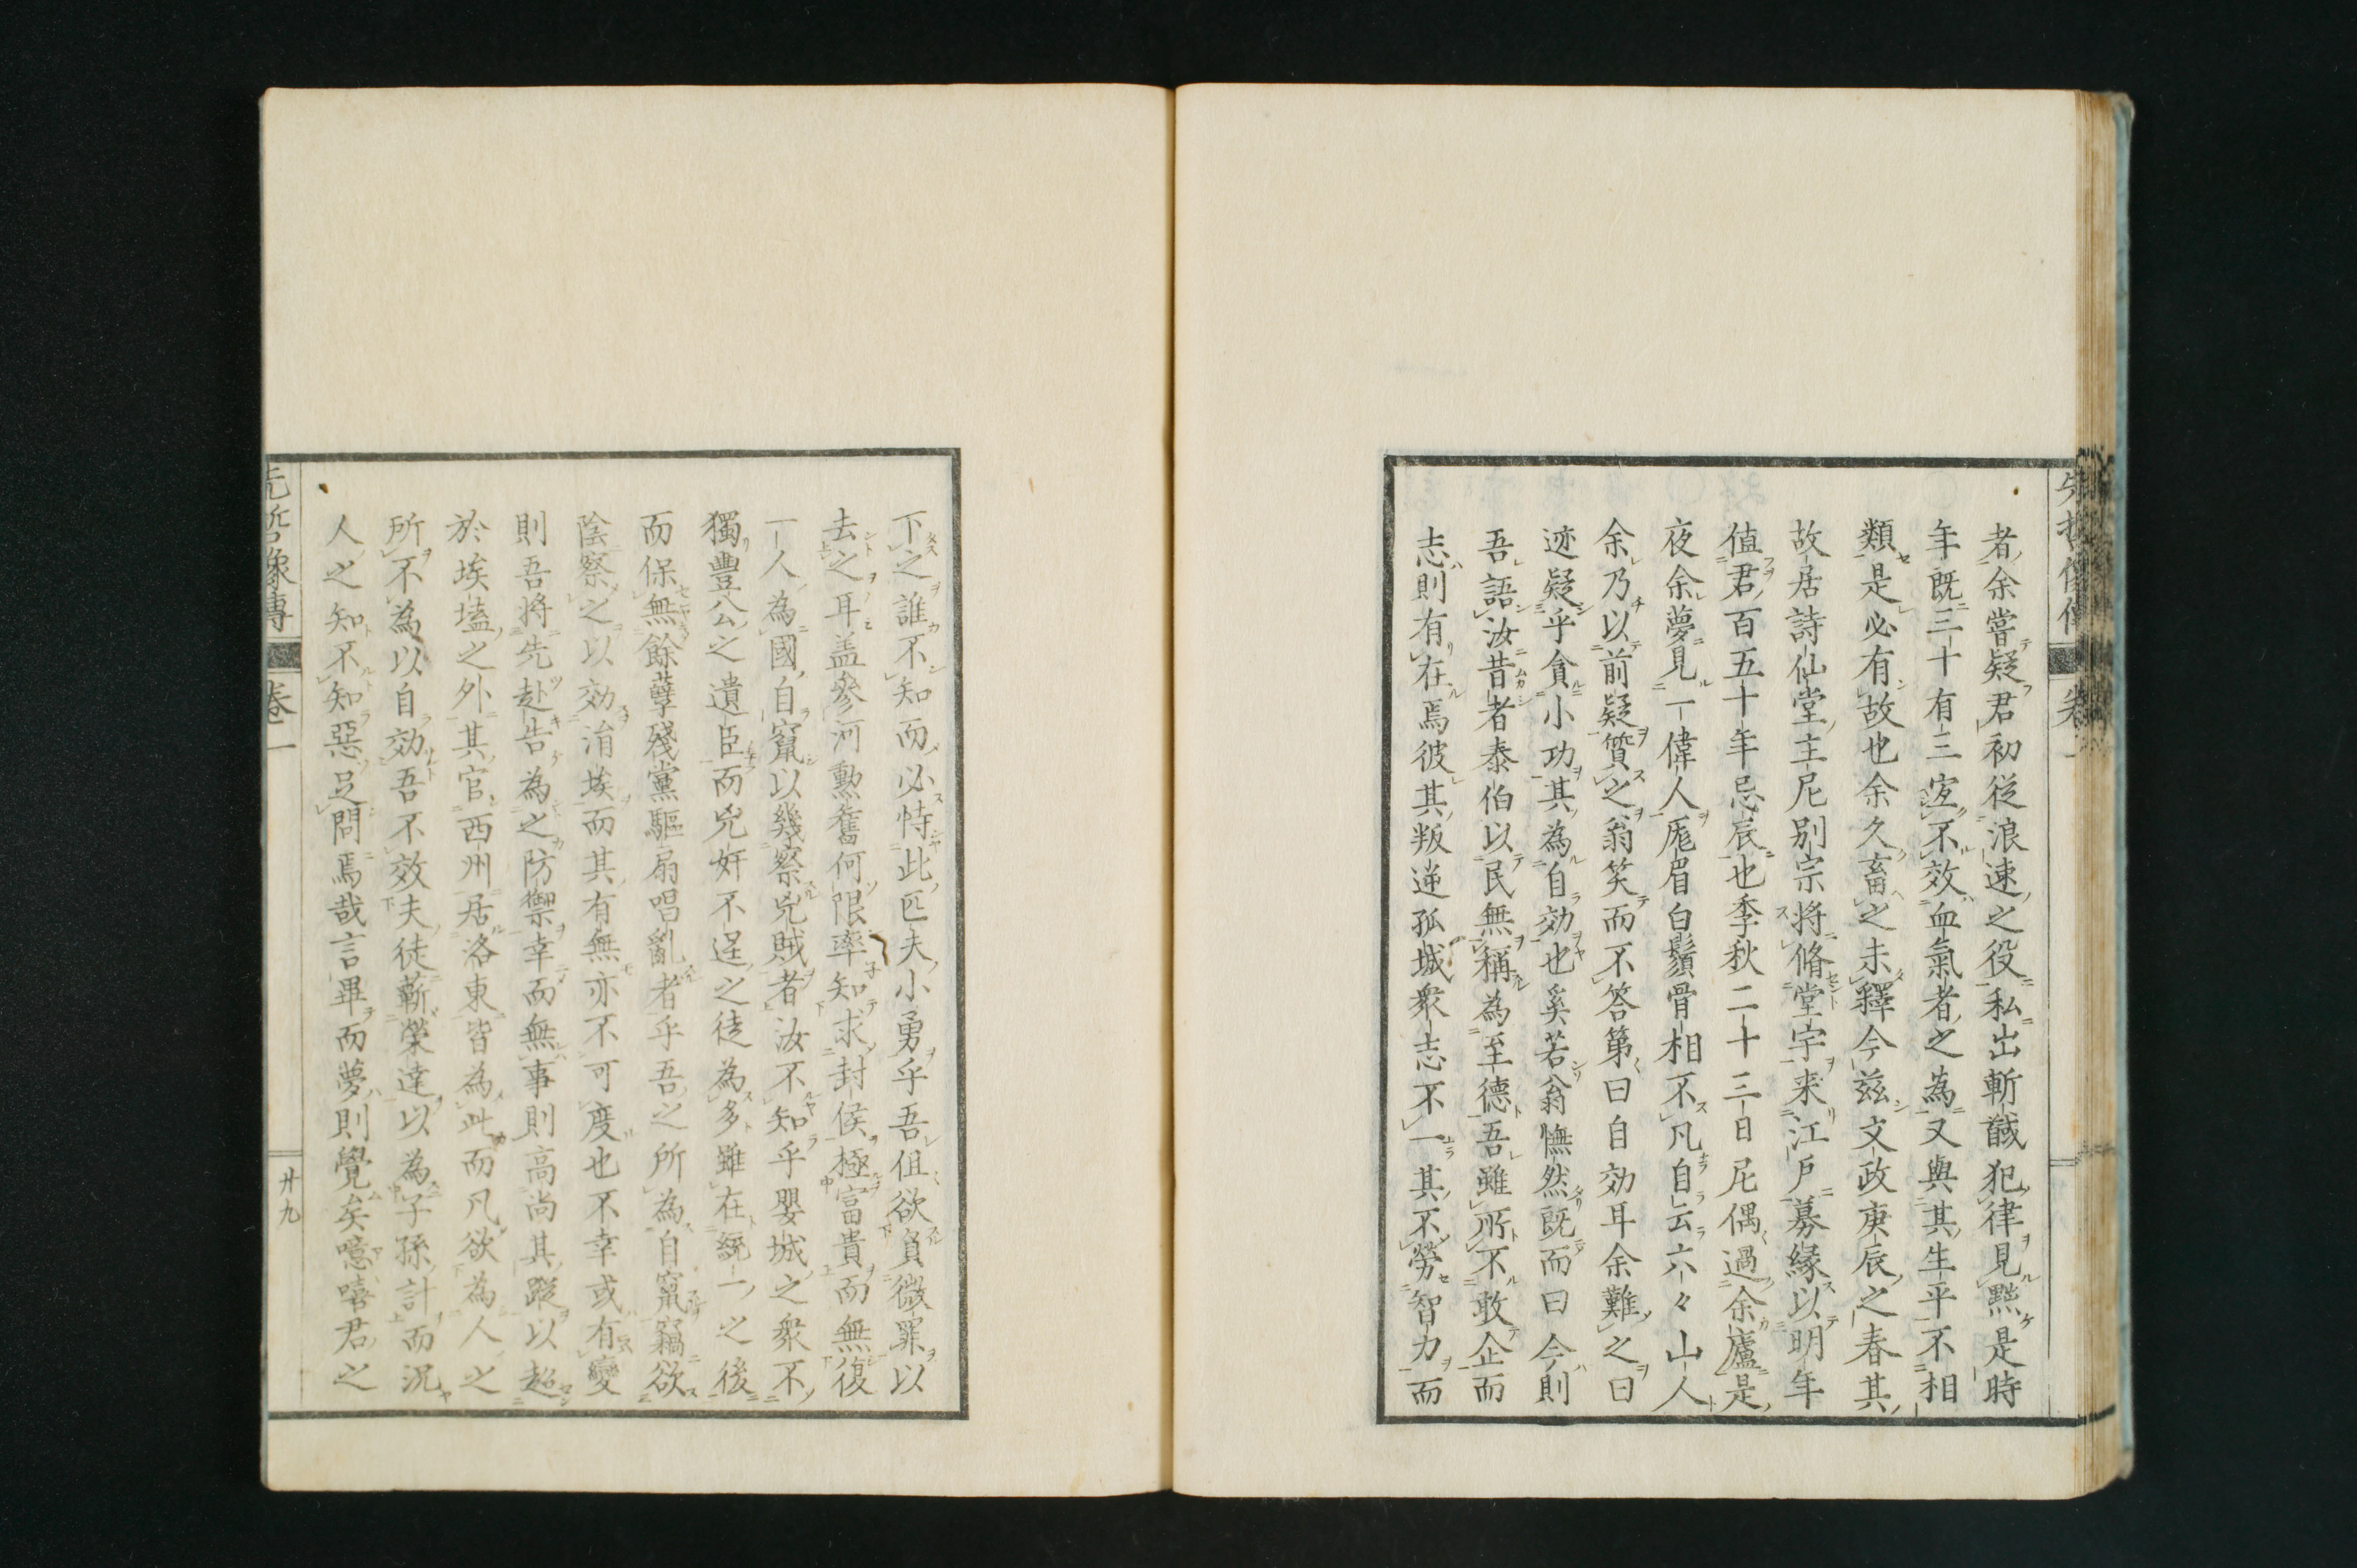 者余嘗疑君初從浪速之役私出斬馘犯律見黜是時
年既三十有三寔不效血氣者之為又與其生平不相
類是必有故也余久畜之未釋今茲文政庚辰之春其
故居詩仙堂主尼別宗將脩堂宇来江戶募縁以明年
值君百五十年忌辰也季秋二十三日尼偶過余廬是
夜余夢見一偉人厖眉白鬚骨相不凡自云六々山人
余乃以前疑質之翁笑而不答第曰自効耳余難之曰
迹疑乎貪小功其為自効也奚若翁憮然既而曰今則
吾語汝昔者泰伯以民無稱為至德吾雖所不敢企而
志則有在焉彼其叛逆孤城衆志不一其不勞智力而
下之誰不知而必恃此匹夫小勇乎吾伹欲負微罪以
去之耳盖參河勳舊何限率知求封侯極富貴而無復
一人為國自竄以幾察兇賊者汝不知乎嬰城之衆不
獨豐公之遺臣而兇奸不逞之徒為多雖在統一之後
而保無餘孽殘黨驅扇唱亂者乎吾之所為自竄竊欲
陰察之以効涓埃而其有無亦不可度也不幸或有變
則吾將先赴告為之防禦幸而無事則高尚其蹤以超
於埃壒之外其官西州居洛東皆為此而凡欲為人之
所不為以自効吾不效夫徒蘄榮達以為子孫計而況
人之知不知惡足問焉哉言畢而夢則覺矣噫嘻君之
先哲像傳
卷一
廿九